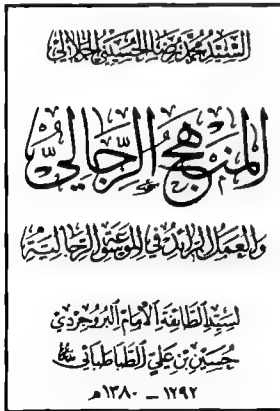 السيد محمد رضا الحسيني الجلالي
المنهج الرجالي
والعمل الرائد في الموسوعة الرجالية
لسيد الطائفة الإمام البروجردي
حسين بن علي الطباطبائي
١٢٩٢ – ١٣٨٠ هـ